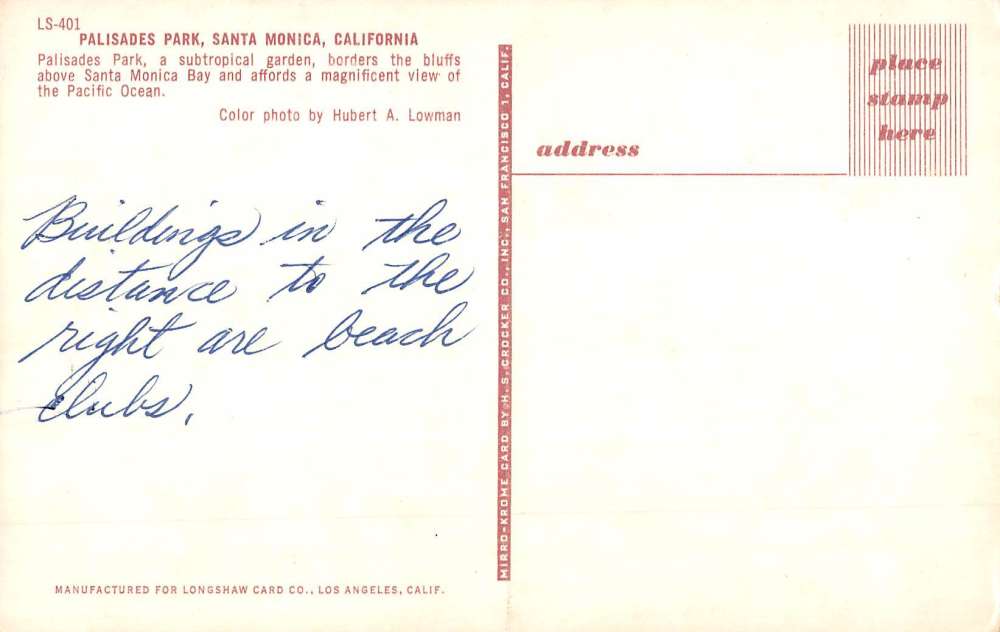 LS-401
PALISADES PARK, SANTA MONICA, CALIFORNIA
Palisades Park, a subtropical garden, borders the bluffs
above Santa Monica Bay and affords a magnificent view of
the Pacific Ocean.
Color photo by Hubert A. Lowman
Buildings in the
distance to the
right are beach
clubs.
MANUFACTURED FOR LONGSHAW CARD CO., LOS ANGELES, CALIF.
MIRRO-KROME CARD BY H. S. CROCKER CO., INC., SAN FRANCISCO 1, CALIF.
place
stamp
here
address